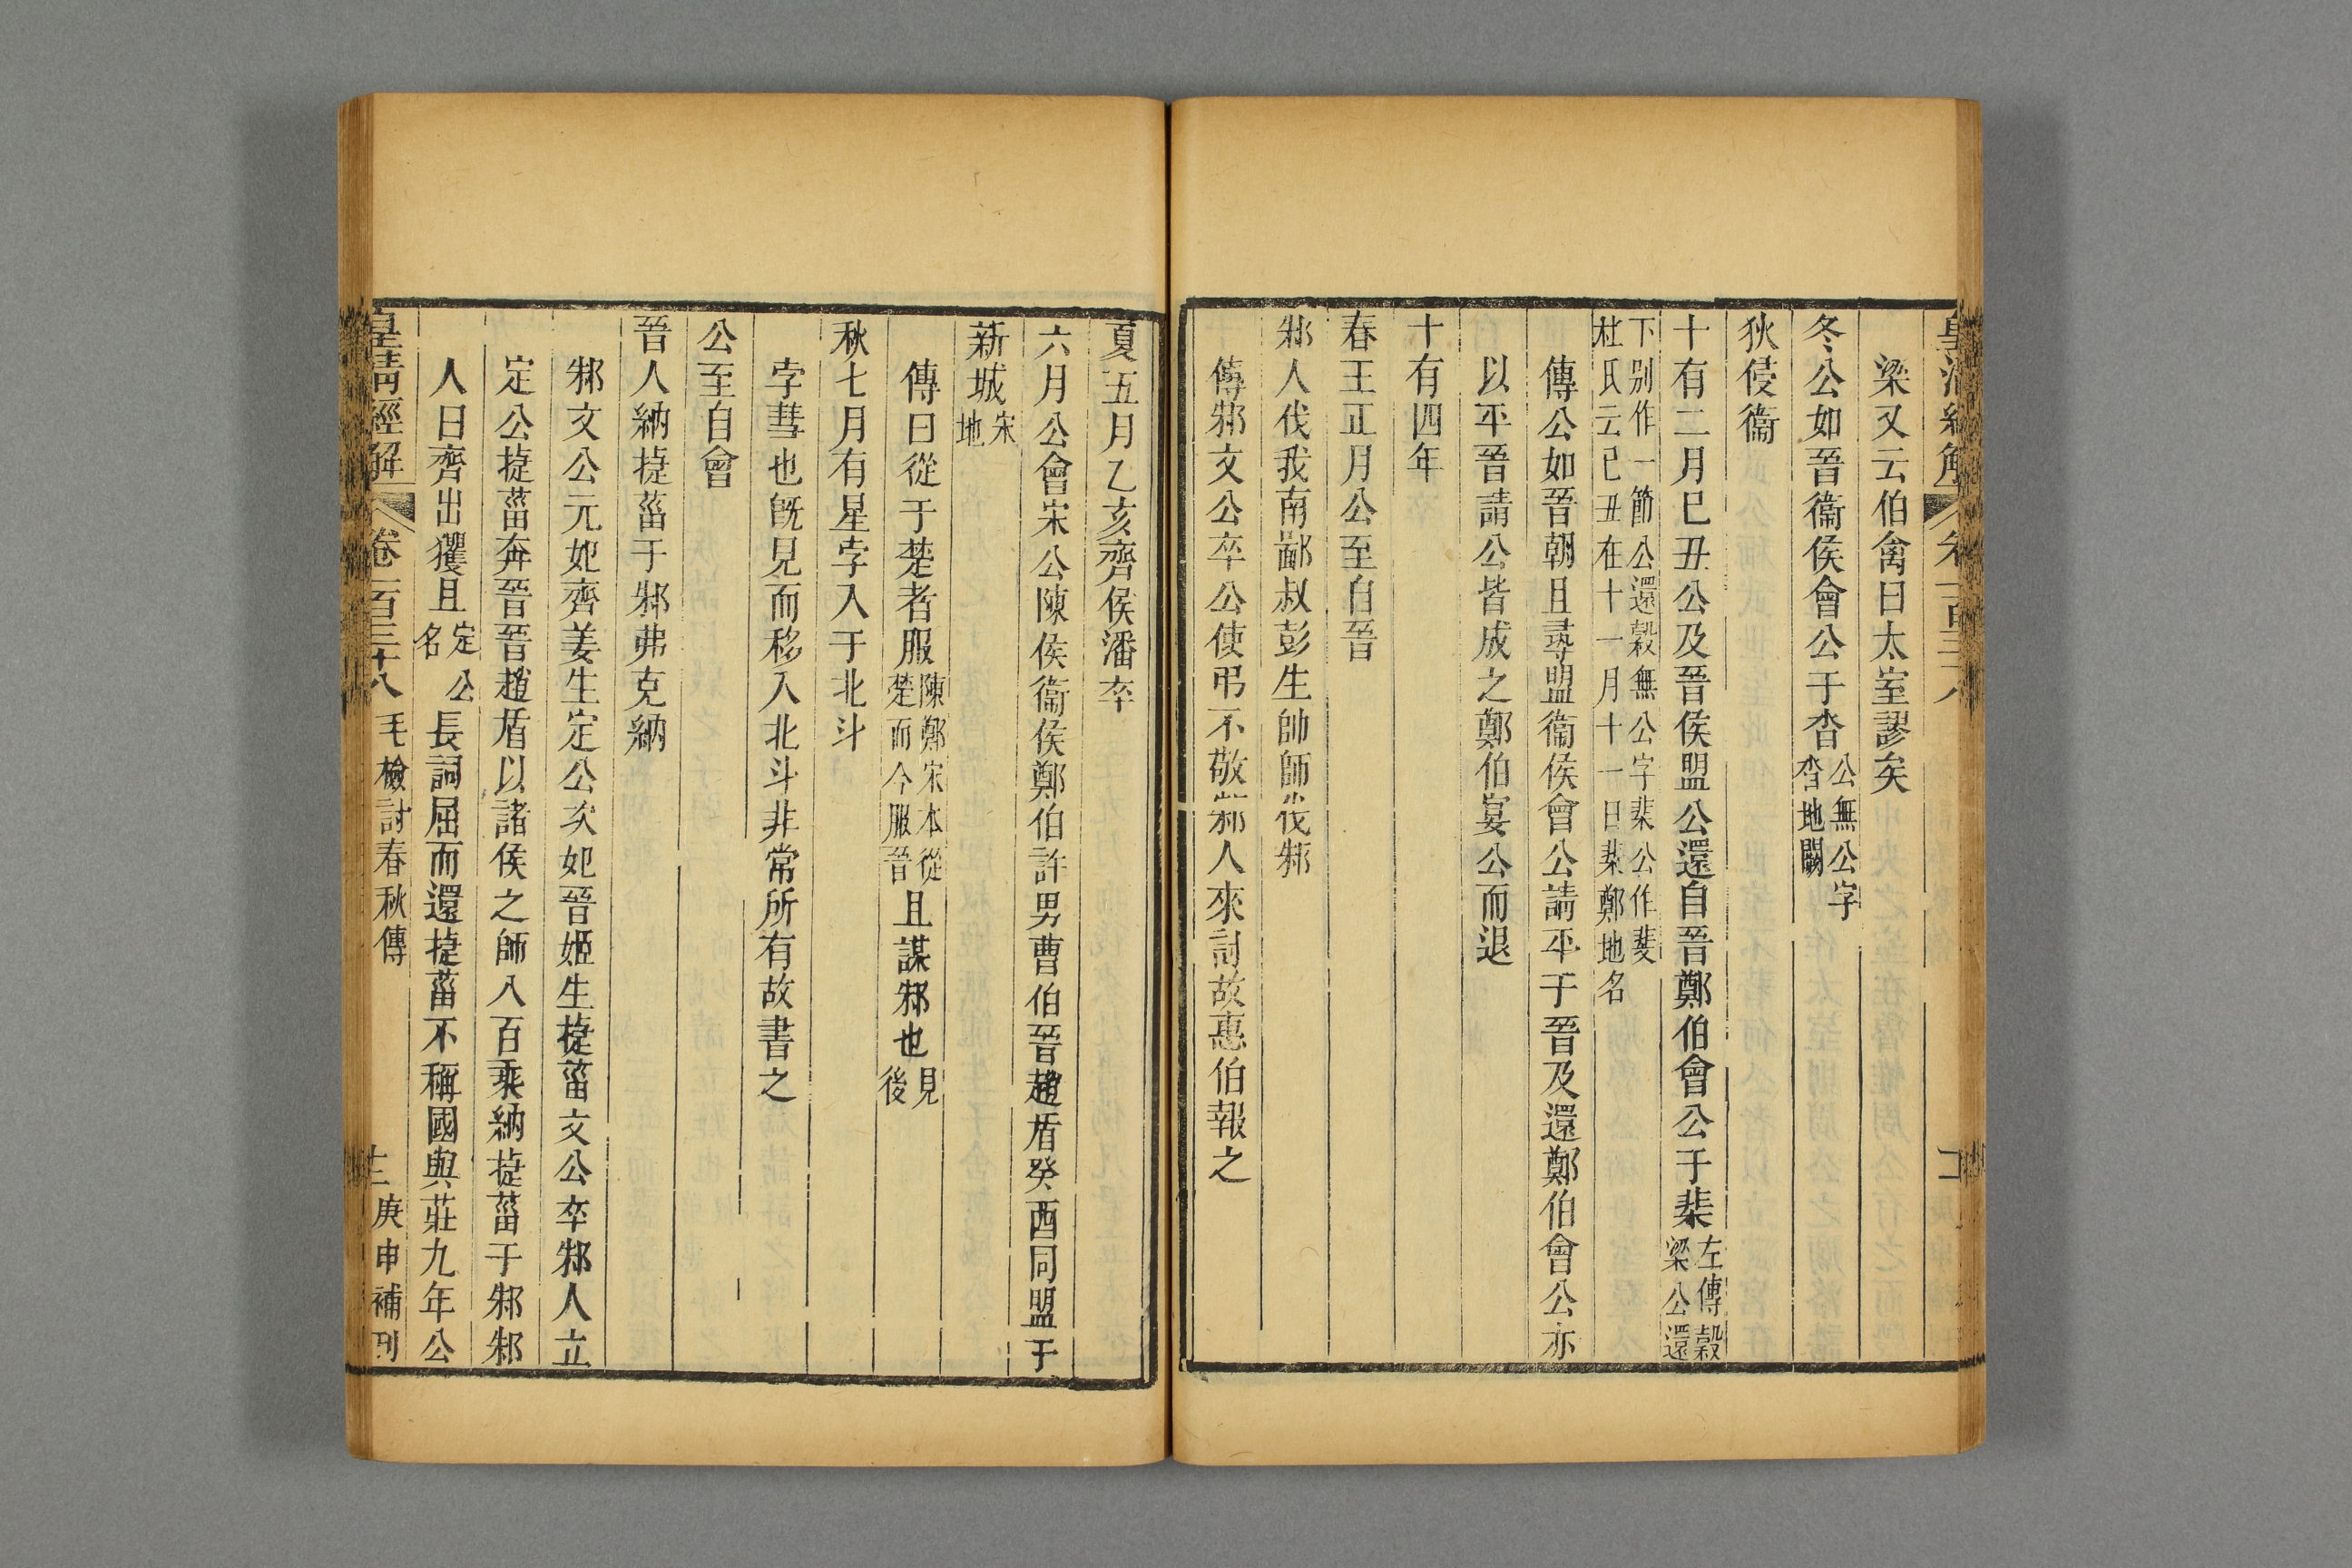 梁又云伯禽曰太室謬矣
冬公如晉衞侯會公于沓公無公字沓地闕
狄侵衞
十有二月巳丑公及晉侯盟公還自晉鄭伯會公于棐左傳穀梁公還
下别作一節公還穀無公字棐公作斐杜氏云已丑在十一月十一日棐鄭地名
傳公如晉朝且尋盟衞侯會公請平于晉及還鄭伯會公亦
以平晉請公皆成之鄭伯宴公而退
十有四年
春王正月公至自晉
邾人伐我南鄙叔彭生帥師伐邾
傳邾文公卒公使弔不敬邾人來討故惠伯報之
夏五月乙亥齊侯潘卒
六月公會宋公陳侯衞侯鄭伯許男曹伯晉趙盾癸酉同盟于
新城宋地
傳曰從于楚者服陳鄭宋本從楚而今服晉且謀邾也見後
秋七月有星孛入于北斗
孛彗也旣見而移入北斗非常所有故書之
公至自會
晉人納捷菑于邾弗克納
邾文公元妃齊姜生定公次妃晉姬生捷菑文公卒邾人立
定公捷菑奔晉晉趙盾以諸侯之師八百乘納捷菑于邾邾
人曰齊出玃且定公名長詞屈而還捷菑不稱國與莊九年公
皇清經解 卷一百三十八 毛檢討春秋傳 庚申補刊